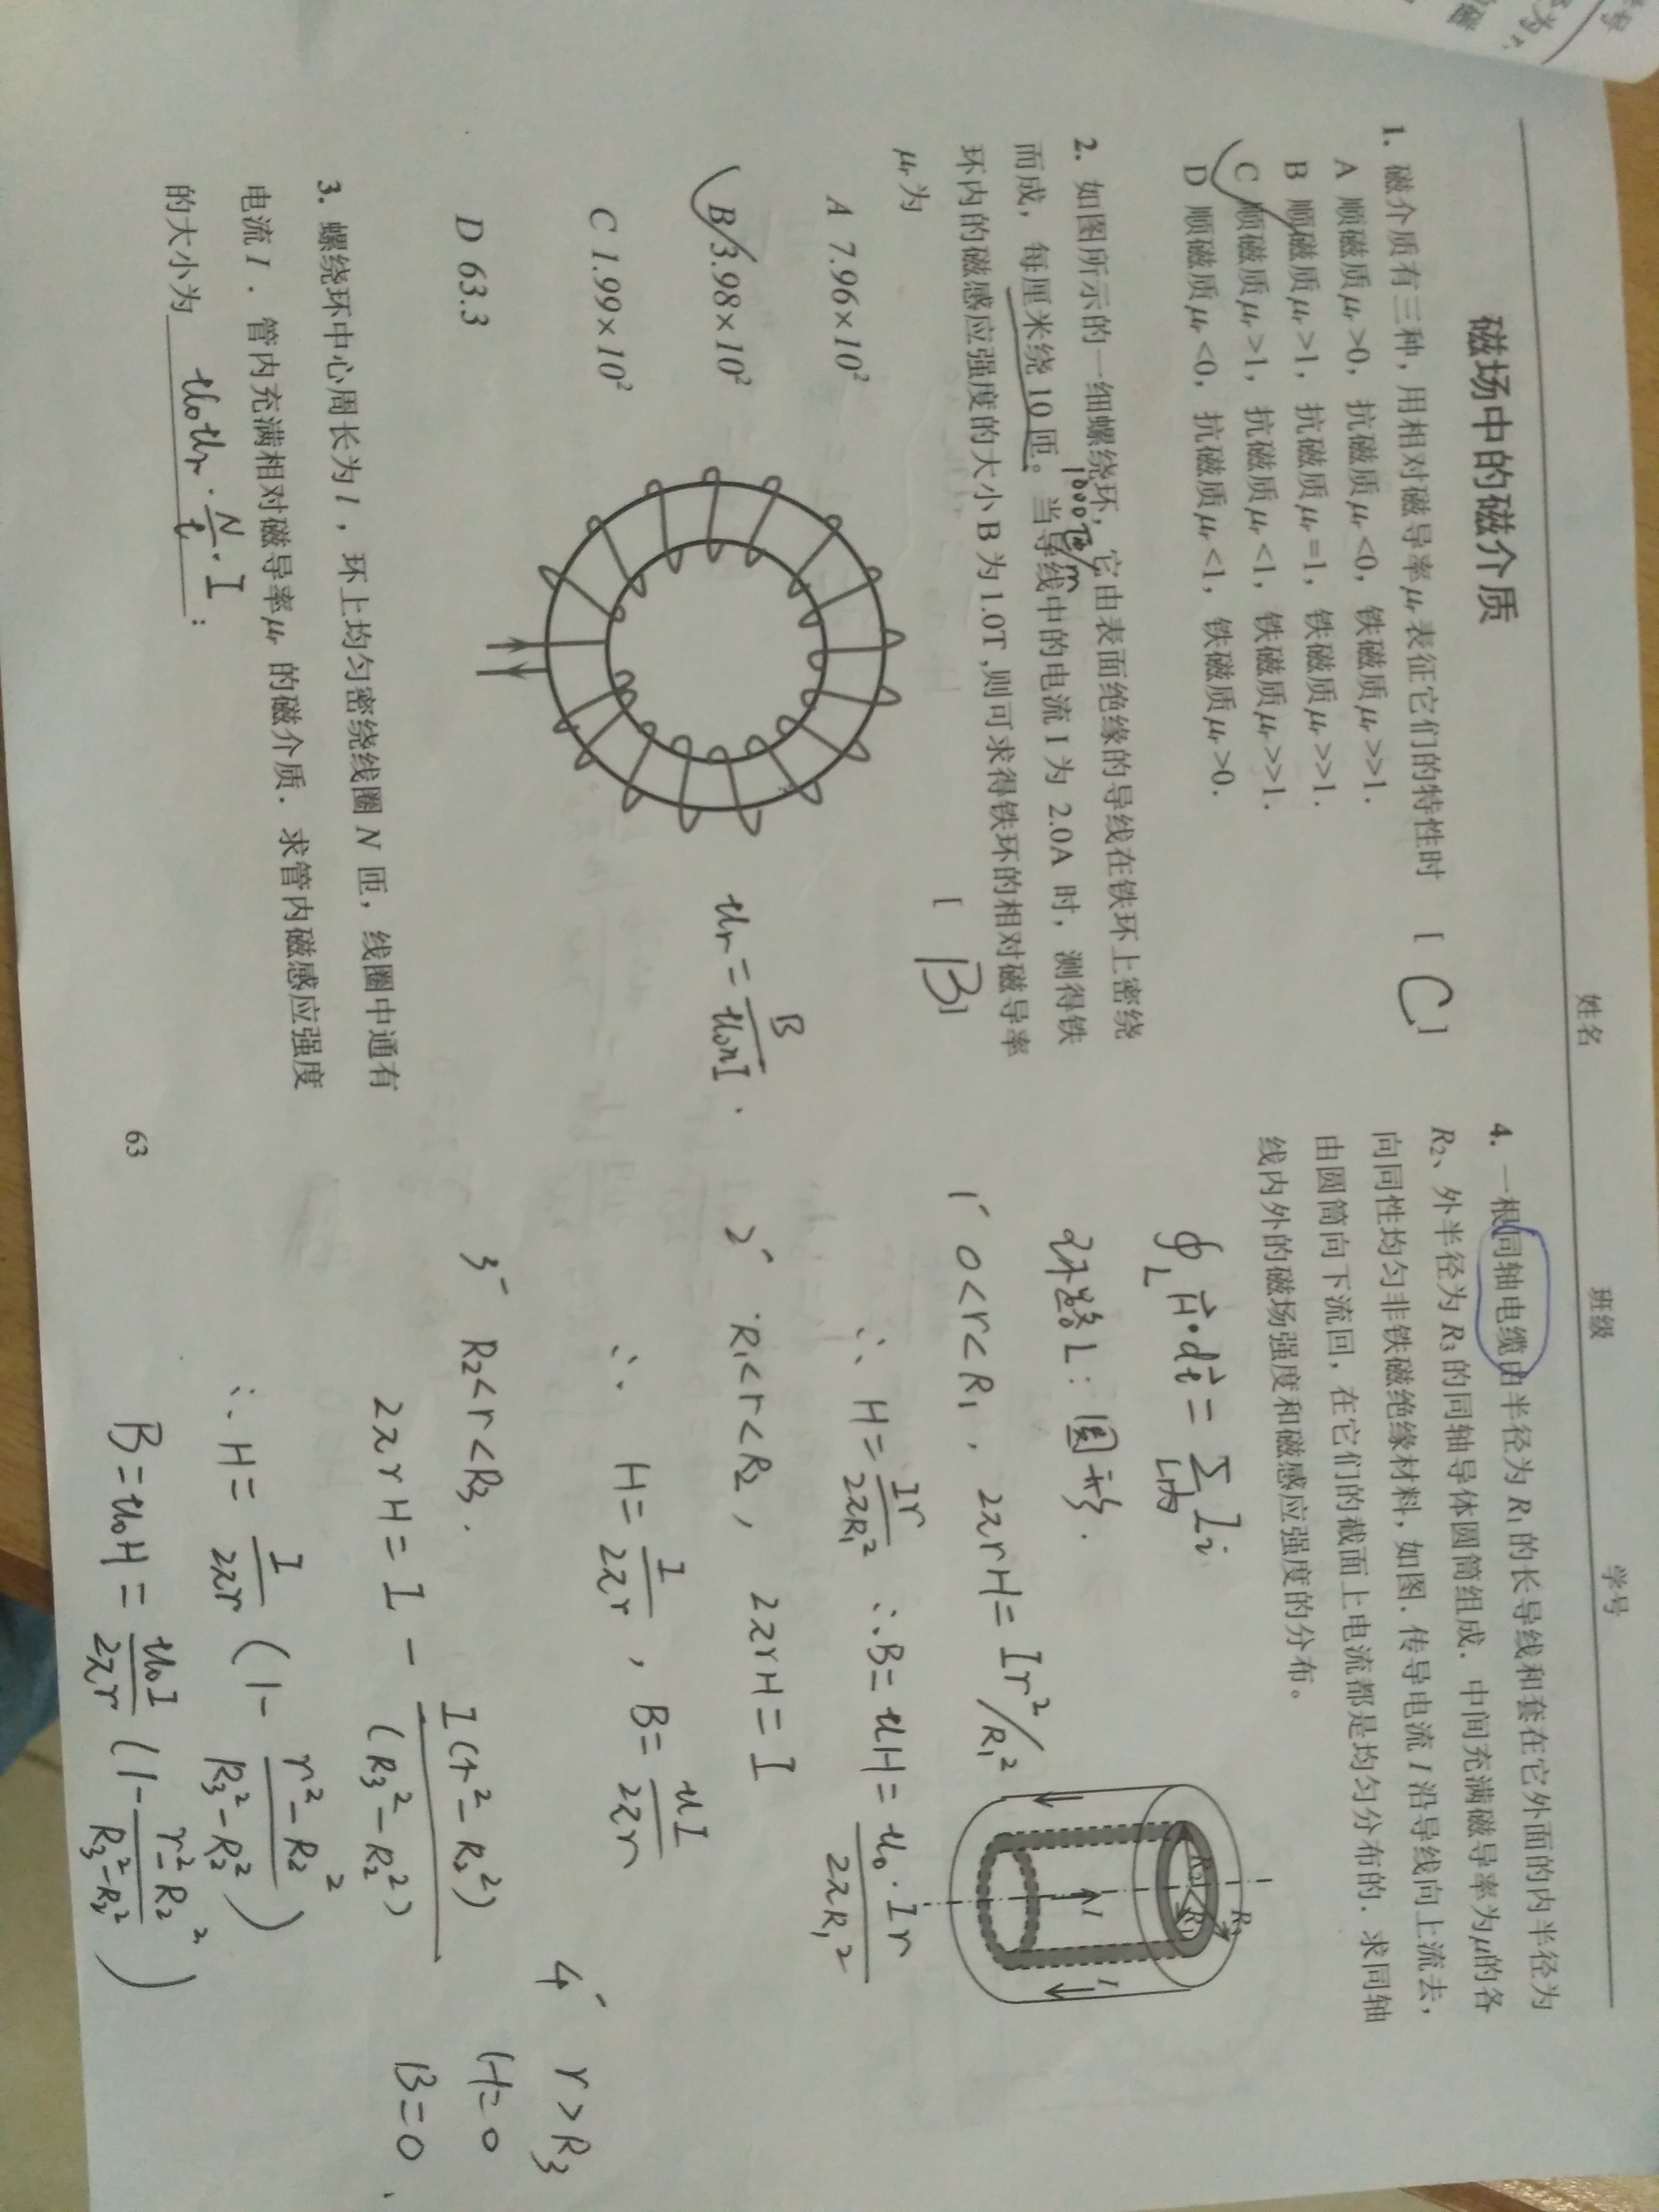 姓名 班级 学号
磁场中的磁介质
1. 磁介质有三种，用相对磁导率μr表征它们的特性时 [ C ]
A 顺磁质μr>0，抗磁质μr<0，铁磁质μr>>1.
B 顺磁质μr>1，抗磁质μr=1，铁磁质μr>>1.
C 顺磁质μr>1，抗磁质μr<1，铁磁质μr>>1.
D 顺磁质μr<0，抗磁质μr<1，铁磁质μr>0.
2. 如图所示的一细螺绕环，它由表面绝缘的导线在铁环上密绕
1000匝/m
而成，每厘米绕10匝。当导线中的电流I为2.0A时，测得铁
环内的磁感应强度的大小B为1.0T,则可求得铁环的相对磁导率
μr为 [ B ]
A 7.96×10²
B 3.98×10²
C 1.99×10²
D 63.3
μr=B/μ₀nI.
3. 螺绕环中心周长为l，环上均匀密绕线圈N匝，线圈中通有
电流I．管内充满相对磁导率μr的磁介质．求管内磁感应强度
的大小为 μ₀μr·N/l·I ；
63
4. 一根同轴电缆由半径为R₁的长导线和套在它外面的内半径为
R₂、外半径为R₃的同轴导体圆筒组成．中间充满磁导率为μ的各
向同性均匀非铁磁绝缘材料，如图．传导电流I沿导线向上流去，
由圆筒向下流回，在它们的截面上电流都是均匀分布的．求同轴
线内外的磁场强度和磁感应强度的分布。
∮L H·dl=∑L内 Ii
环路L：圆形.
1° 0<r<R₁, 2πrH=Ir²/R₁²
∴ H=Ir/2πR₁² ∴B=μH=μ₀·Ir/2πR₁²
2° R₁<r<R₂, 2πrH=I
∴ H=I/2πr, B=μI/2πr
3° R₂<r<R₃.
2πrH=I-I(r²-R₂²)/(R₃²-R₂²)
∴ H=I/2πr(1-r²-R₂²/R₃²-R₂²)
B=μ₀H=μ₀I/2πr(1-r²-R₂²/R₃²-R₂²)
4° r>R₃
H=0
B=0
I
I